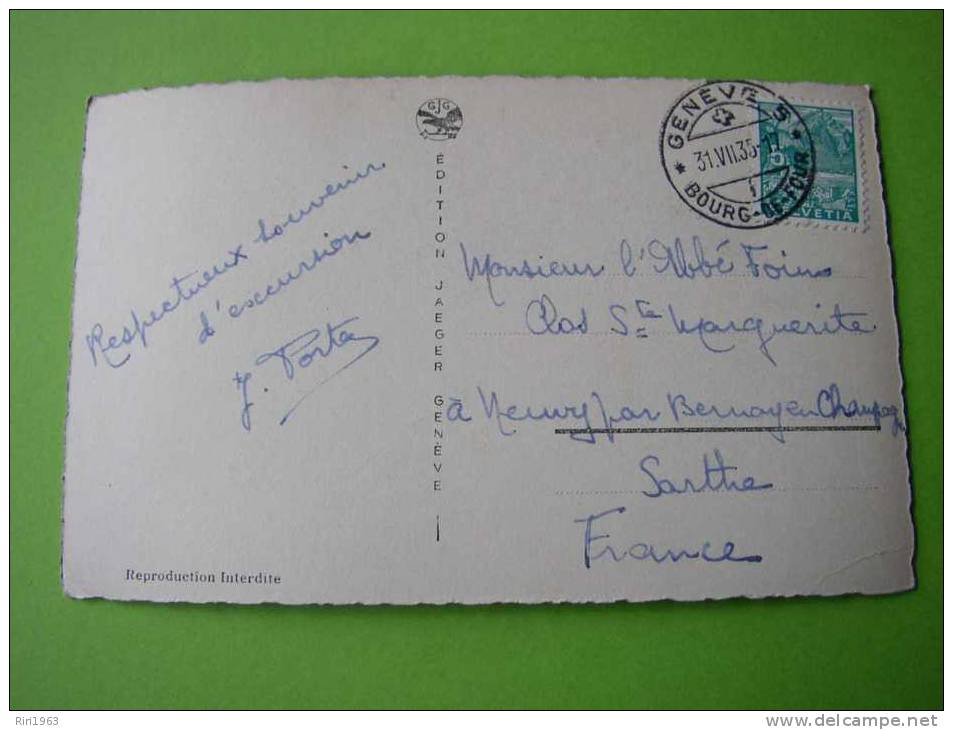 Respectueux souvenir
d'excursion
J. Porte
GJG
ÉDITION JAEGER GENÈVE
Reproduction Interdite
GENÈVE 5
31.VII.35
BOURG-DE-FOUR
5
HELVETIA
Monsieur l'Abbé
Clos Ste Marguerite
à Neuvy par Bernay en Champagne
Sarthe
France
Riri1963
www.delcampe.net